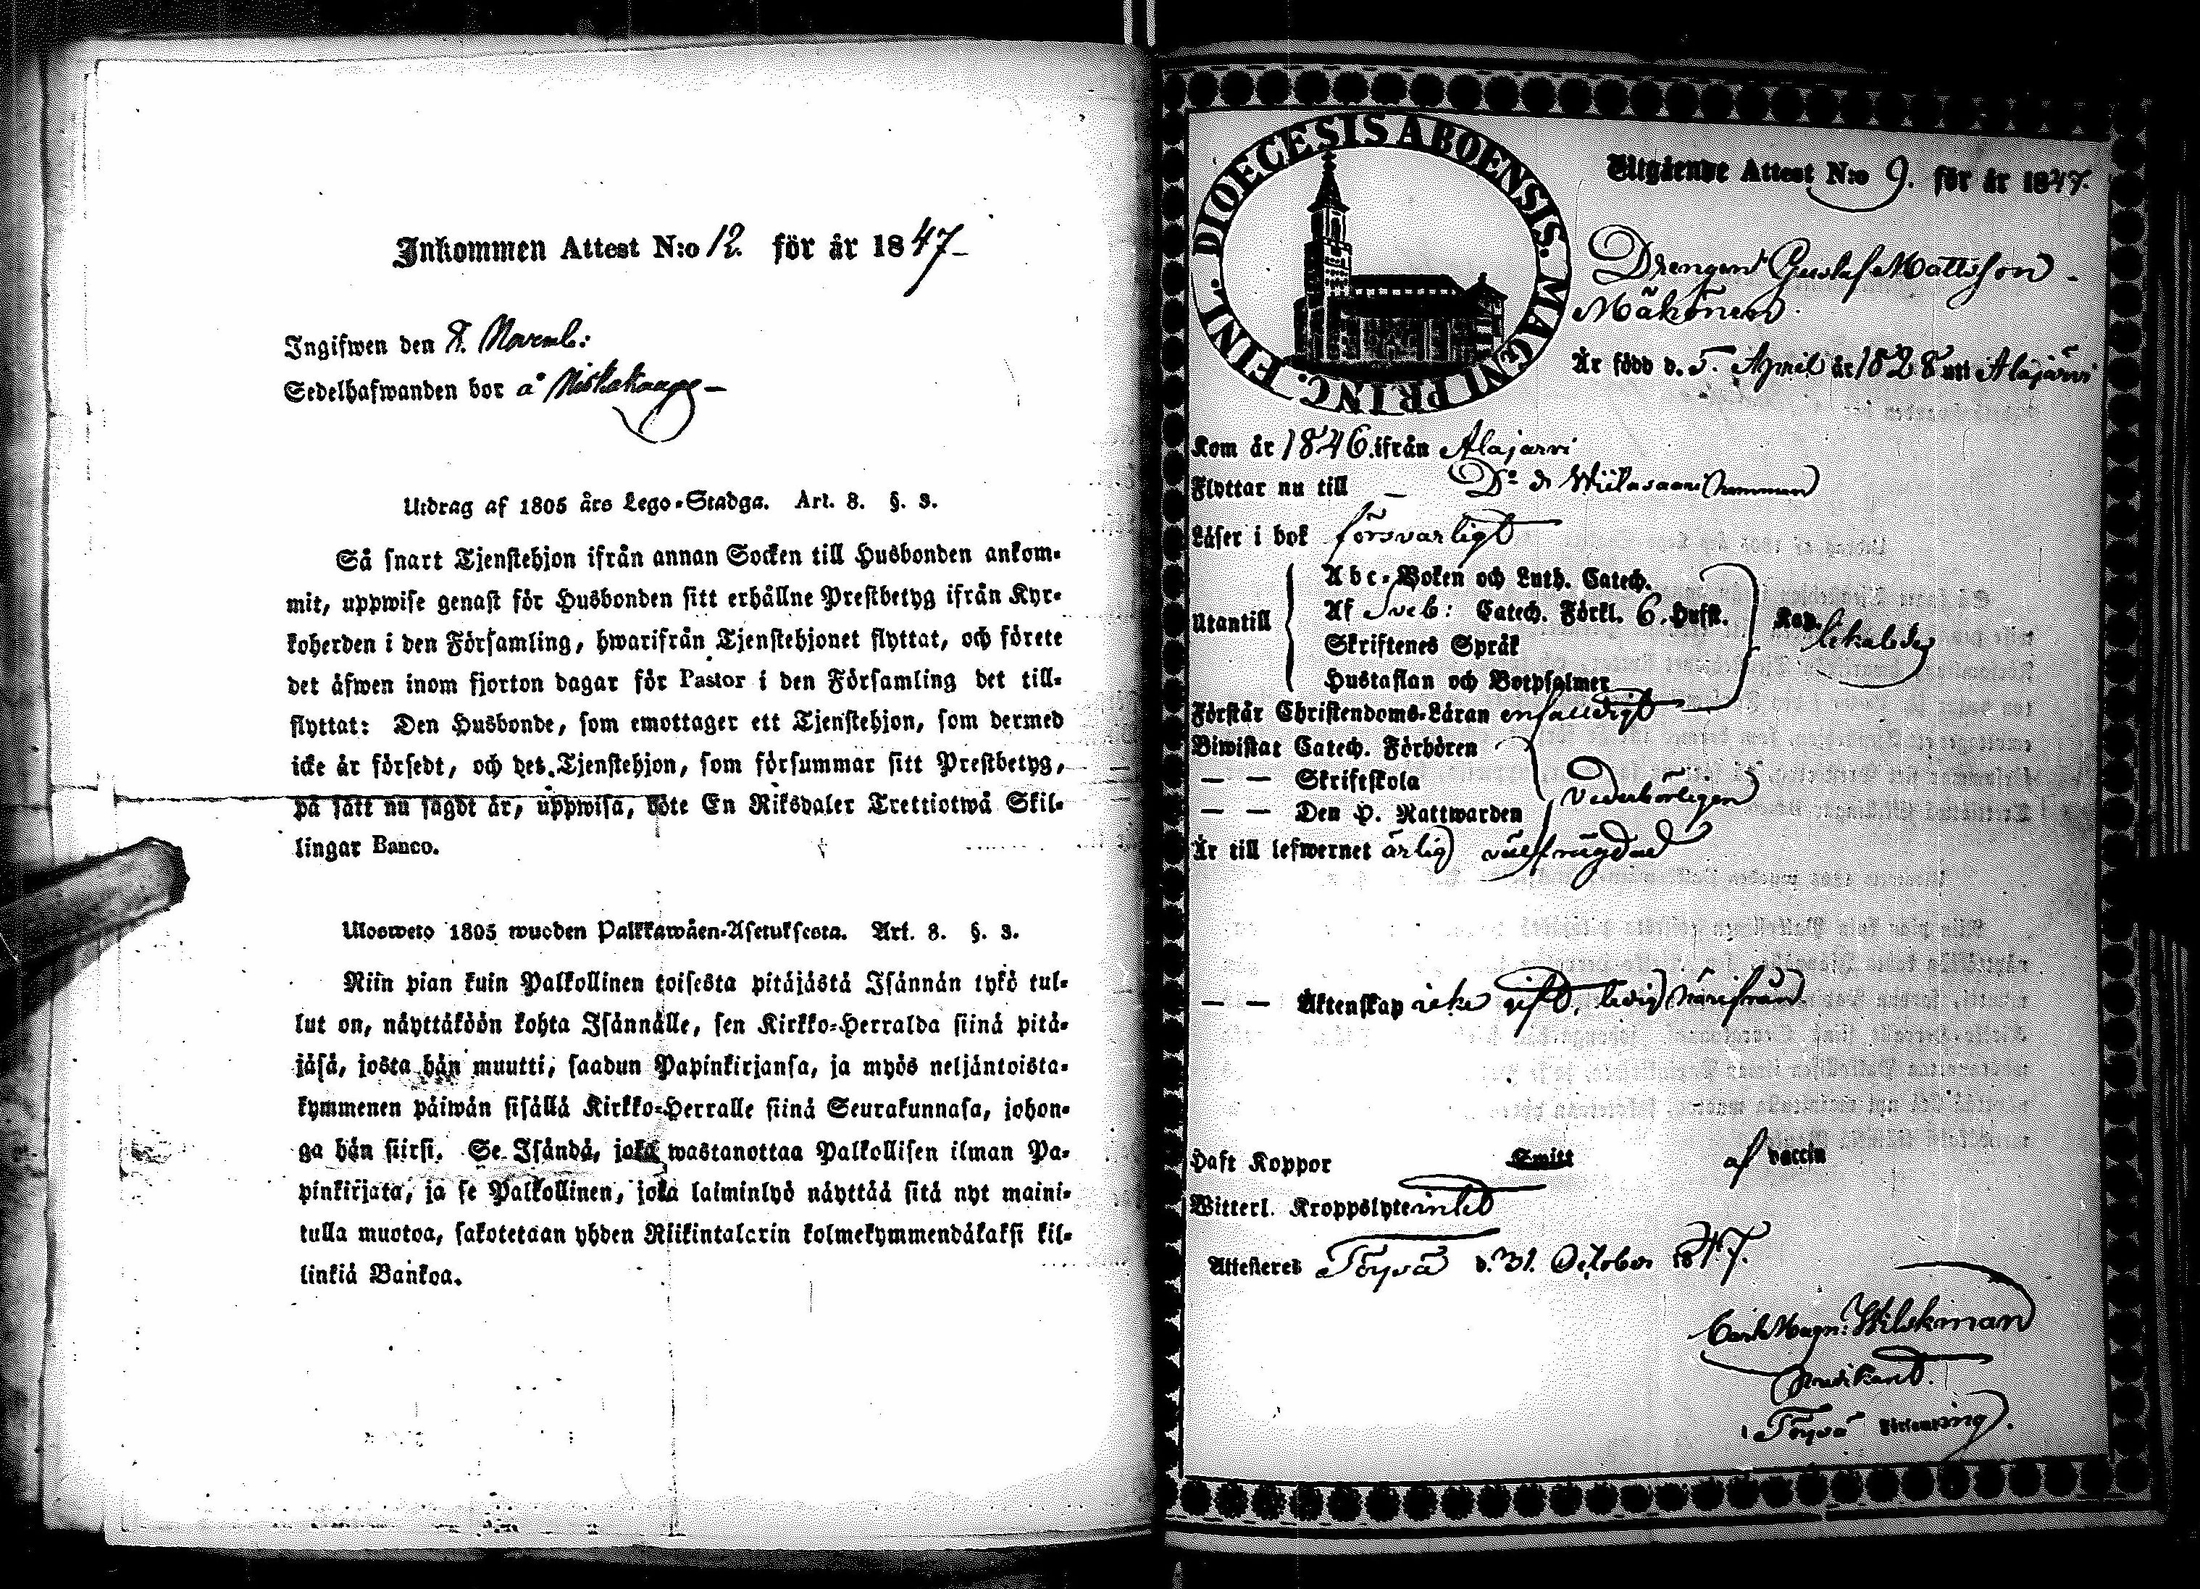 Inkommen Attest N:o 12. för år 1847-
Ingifwen den 8. Novemb:
Sedelhafwanden bor å Niskakangas -
Utdrag af 1805 års Lego-Stadga. Art. 8. §. 3.
Så snart Tjenstehjon ifrån annan Socken till Husbonden ankom-
mit, uppwise genast för Husbonden sitt erhållne Prestbetyg ifrån Kyr-
koherden i den Församling, hwarifrån Tjenstehjonet flyttat, och förete
det äfwen inom fjorton dagar för Pastor i den Församling det till-
flyttat: Den Husbonde, som emottager ett Tjenstehjon, som dermed
icke är försedt, och det Tjenstehjon, som försummar sitt Prestbetyg,
på sätt nu sagdt är, uppwisa, böte En Riksdaler Trettiotwå Skil-
lingar Banco.
Ulosweto 1805 wuoden Palkkawäen-Asetuksesta. Art. 8. §. 3.
Niin pian kuin Palkollinen toisesta pitäjästä Isännän tykö tul-
lut on, näyttäköön kohta Isännälle, sen Kirkko-Herralda siinä pitä-
jäsä, josta hän muutti, saadun Papinkirjansa, ja myös neljäntoista-
kymmenen päiwän sisällä Kirkko-Herralle siinä Seurakunnasa, johon-
ga hän siirsi. Se Isändä, joka wastanottaa Palkollisen ilman Pa-
pinkirjata, ja se Palkollinen, joka laiminlyö näyttää sitä nyt maini-
tulla muotoa, sakotetaan yhden Riikintalarin kolmekymmendäkaksi kil-
linkiä Bankoa.
DIOECESIS ABOENSIS. MAGNI PRINC. FINL.
Utgående Attest N:o 9. för år 1847.
Drengen Gustaf Mattsson
Mäkönen.
Är född d. 5. April år 1828 uti Alajärvi
Kom år 1846. ifrån Alajärvi
Flyttar nu till - D:o
Läser i bok försvarligt
Utantill
Abc-Boken och Luth. Catech.
Af Sveb: Catech. Förkl. 6. Hufst. Kap.
Skriftenes Språk
Hustaflan och Botpsalmer
Förstår Christendoms-Läran enfalldigt
Biwistat Catech. Förhören
— — Skriftskola
— — Den H. Nattwarden
vederbörligen
Är till lefwernet ärlig välfrägdad
— — Äktenskap icke gift, ledig härifrån
Haft Koppor Smitt af vaccin
Witterl. Kroppslyte intet
Attesteres Töysä d. 31. October 1847.
Carl Magn: Wilskman
Predikant.
i Töysä Församling.